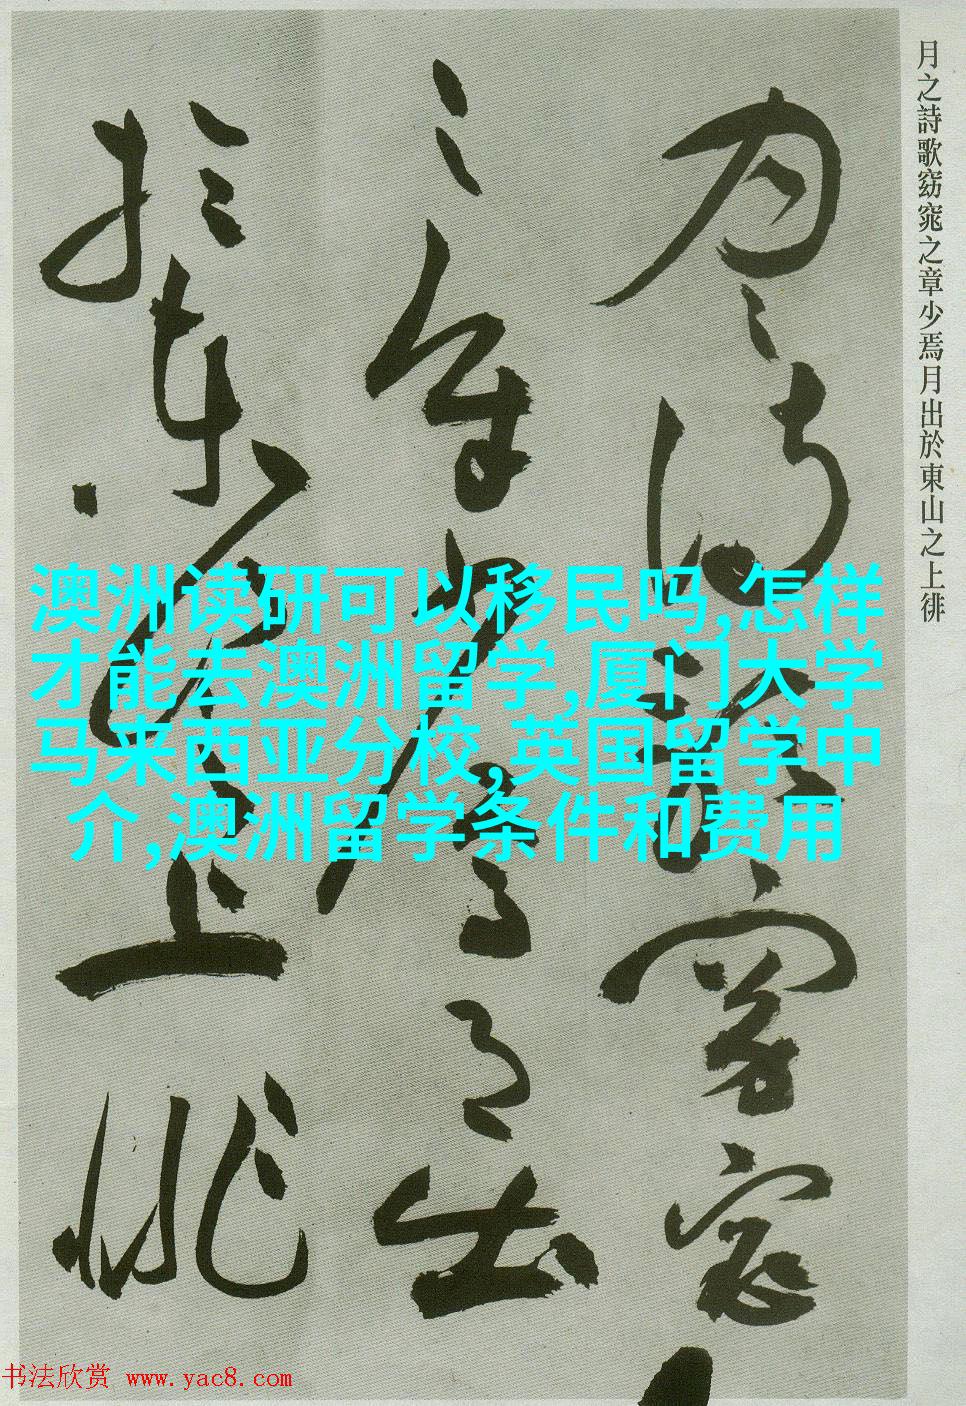 月之詩歌窈窕之章少焉月出於東山之上徘
月之詩歌窈窕
之章少焉月出
於東山之上徘
澳洲读研可以移民吗,怎样
才能去澳洲留学,厦门大学
马来西亚分校,英国留学中
介,澳洲留学条件和费用
书法欣赏 www.yac8.com